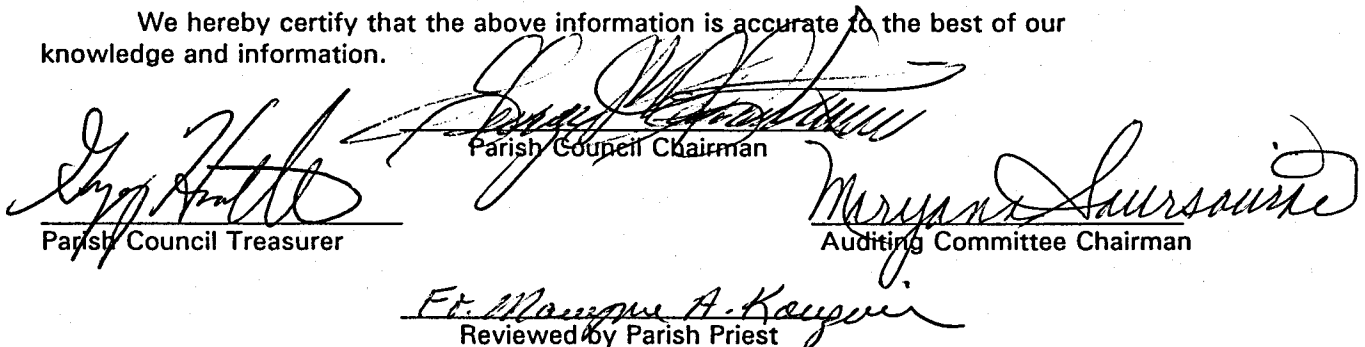 We hereby certify that the above information is accurate to the best of our
knowledge and information.
Parish Council Chairman
Parish Council Treasurer
Maryann
Auditing Committee Chairman
Fr. A.
Reviewed by Parish Priest